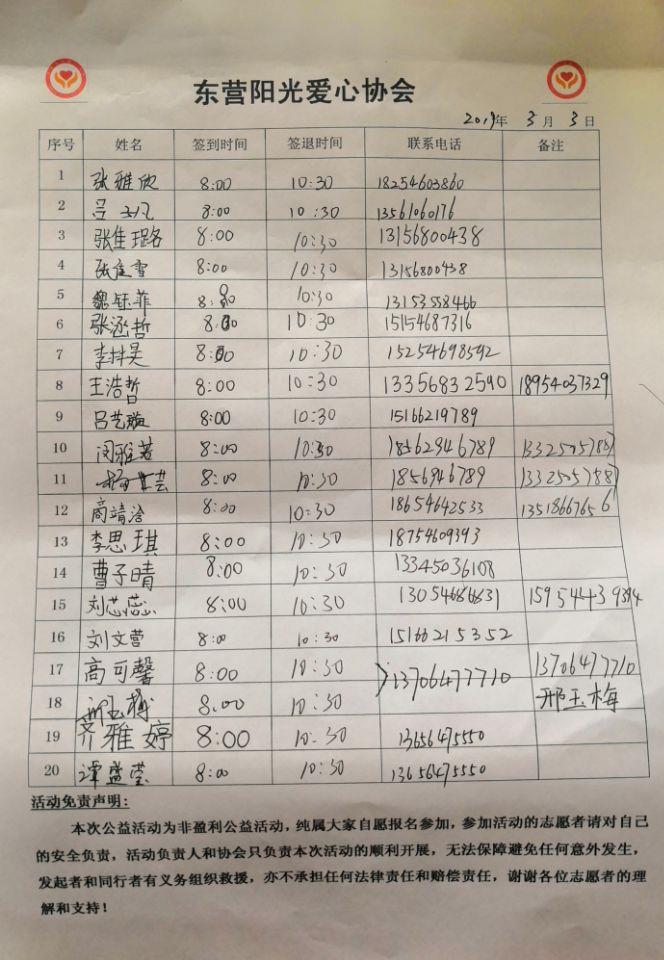 东营阳光爱心协会
2019年 3 月 3 日
序号 姓名 签到时间 签退时间 联系电话 备注
1 张雅欣 8:00 10:30 18254603860
2 吕 8:00 10:30 13561060176
3 张佳璐 8:00 10:30 13156800438
4 张佳雪 8:00 10:30 13156800438
5 魏钰菲 8:00 10:30 13153558466
6 张涵哲 8:00 10:30 15154687316
7 李抖昊 8:00 10:30 15254698542
8 王浩哲 8:00 10:30 13356832540 18954037329
9 吕艺璇 8:00 10:30 15166219789
10 闵雅茗 8:00 10:30 18562946789
11 8:00 10:30 1856946789
12 高靖涵 8:00 10:30 18654642533 13518667656
13 李思琪 8:00 10:30 18754609393
14 曹子晴 8:00 10:30 13345036108
15 刘芯蕊 8:00 10:30
16 刘文营 8:00 10:30 15166215352
17 高可馨 8:00 10:30 13706477710 13706477710
18 邢玉梅 8:00 10:30 邢玉梅
19 齐雅婷 8:00 10:30 13656475550
20 谭盛莹 8:00 10:30 13656475550
活动免责声明：
本次公益活动为非盈利公益活动，纯属大家自愿报名参加，参加活动的志愿者请对自己
的安全负责，活动负责人和协会只负责本次活动的顺利开展，无法保障避免任何意外发生，
发起者和同行者有义务组织救援，亦不承担任何法律责任和赔偿责任，谢谢各位志愿者的理
解和支持！